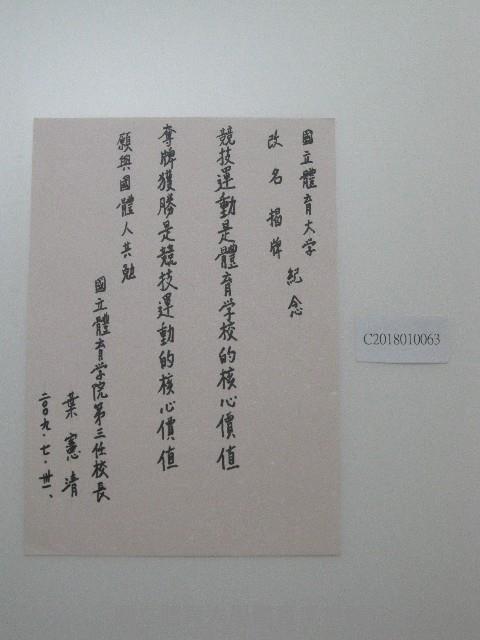 國立體育大学
改名揭牌紀念
競技運動是體育学校的核心價值
奪牌獲勝是競技運動的核心價值
願與國體人共勉
國立體育学院第三任校長
葉憲清
二〇〇九.七.卅一、
C2018010063